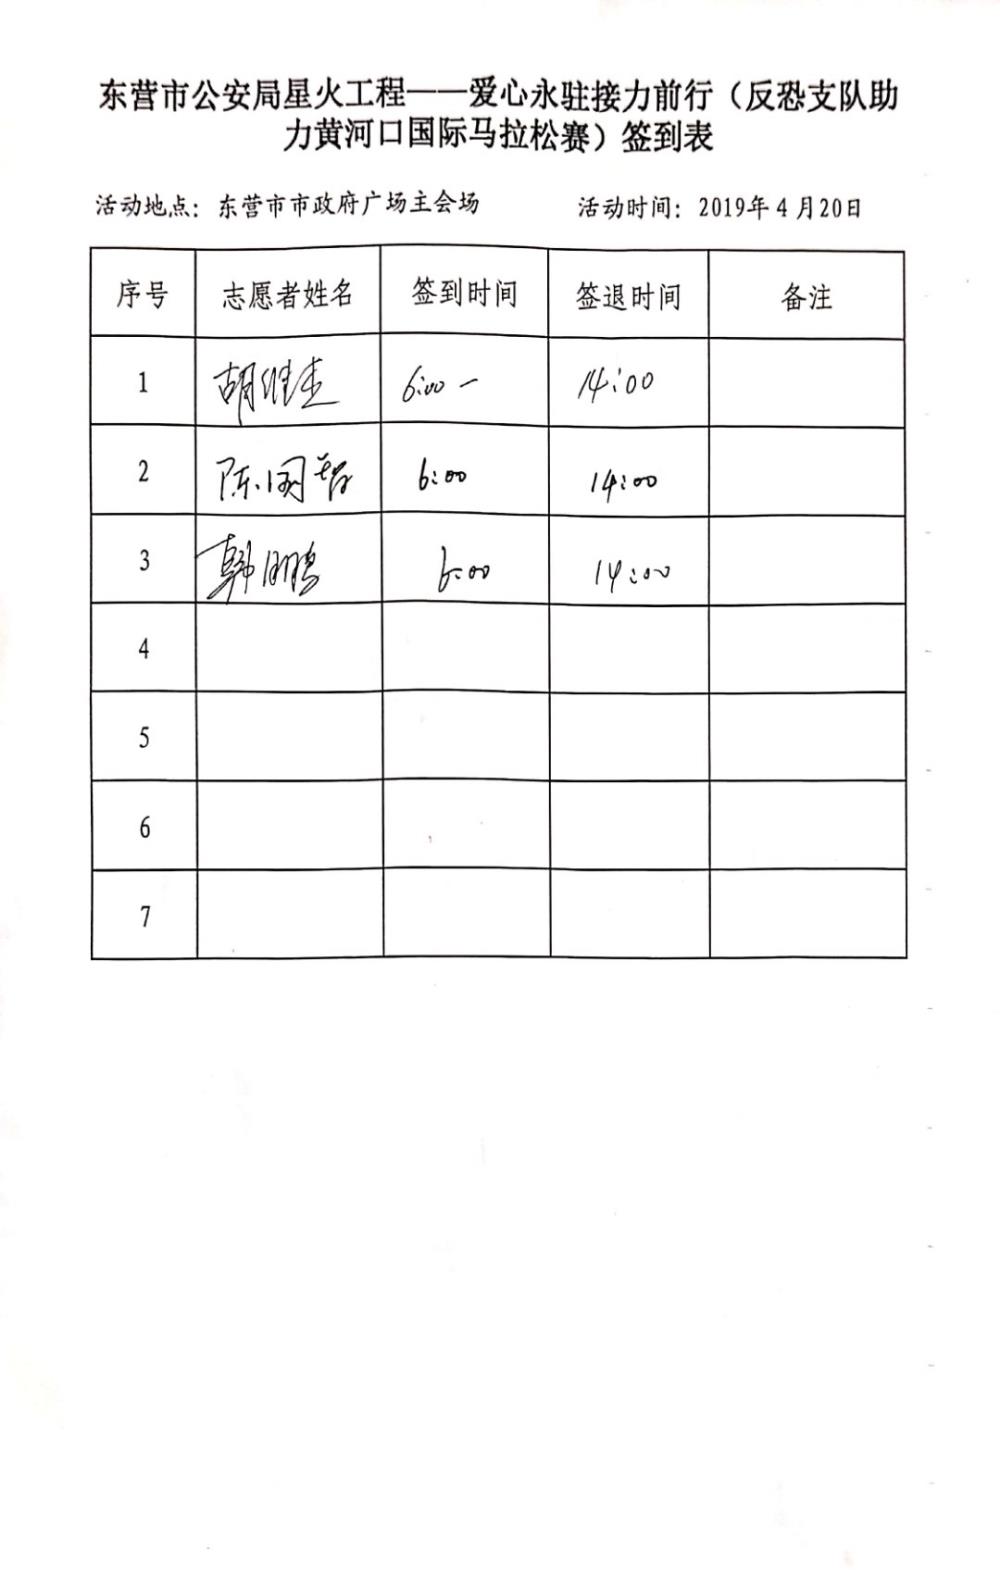 东营市公安局星火工程——爱心永驻接力前行（反恐支队助
力黄河口国际马拉松赛）签到表
活动地点：东营市市政府广场主会场 活动时间：2019年4月20日
序号 志愿者姓名 签到时间 签退时间 备注
1 胡继杰 6:00 - 14:00
2 陈国智 6:00 14:00
3 韩鹏 6:00 14:00
4
5
6
7